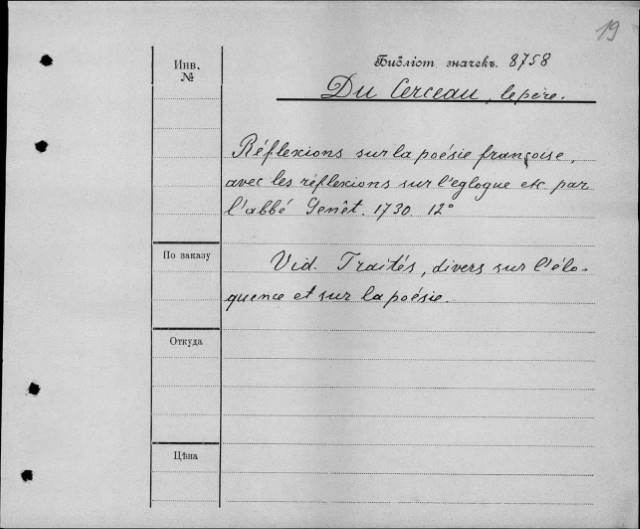 19
Инв. №
Библіот. значекъ. 8758
Du Cerceau, le père.
Réflexions sur la poésie françoise,
avec les réflexions sur l'eglogue etc par
l'abbé Genêt. 1730. 12°
По заказу
Vid. Traités, divers sur l'élo-
quence et sur la poésie.
Откуда
Цѣна